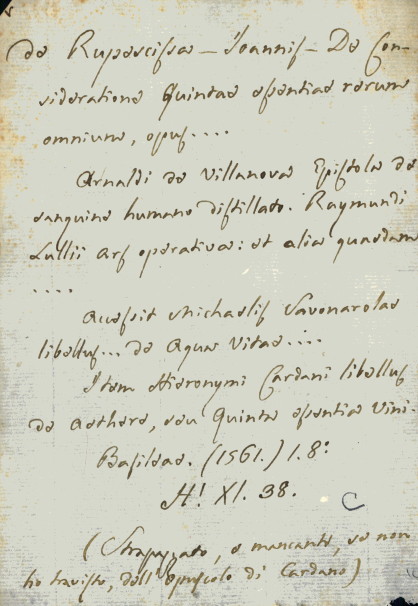 de Rupescissa — Ioannis — De Con-
sideratione Quintae essentiae rerum
omnium, opus....
Arnaldi de Villanova Epistola de
sanguine humano distillato. Raymundi
Lullii Ars operativa: et alia quaedam
....
Accessit Michaelis Savonarolae
libellus... de Aqua Vitae....
Item Hieronymi Cardani libellus
de Aethere, seu Quinta essentia Vini.
Basileae. (1561.) 1. 8°
H! XI. 38.
(Strapazzato, e mancante, se non
ho travisto, dell' Opuscolo di Cardano)